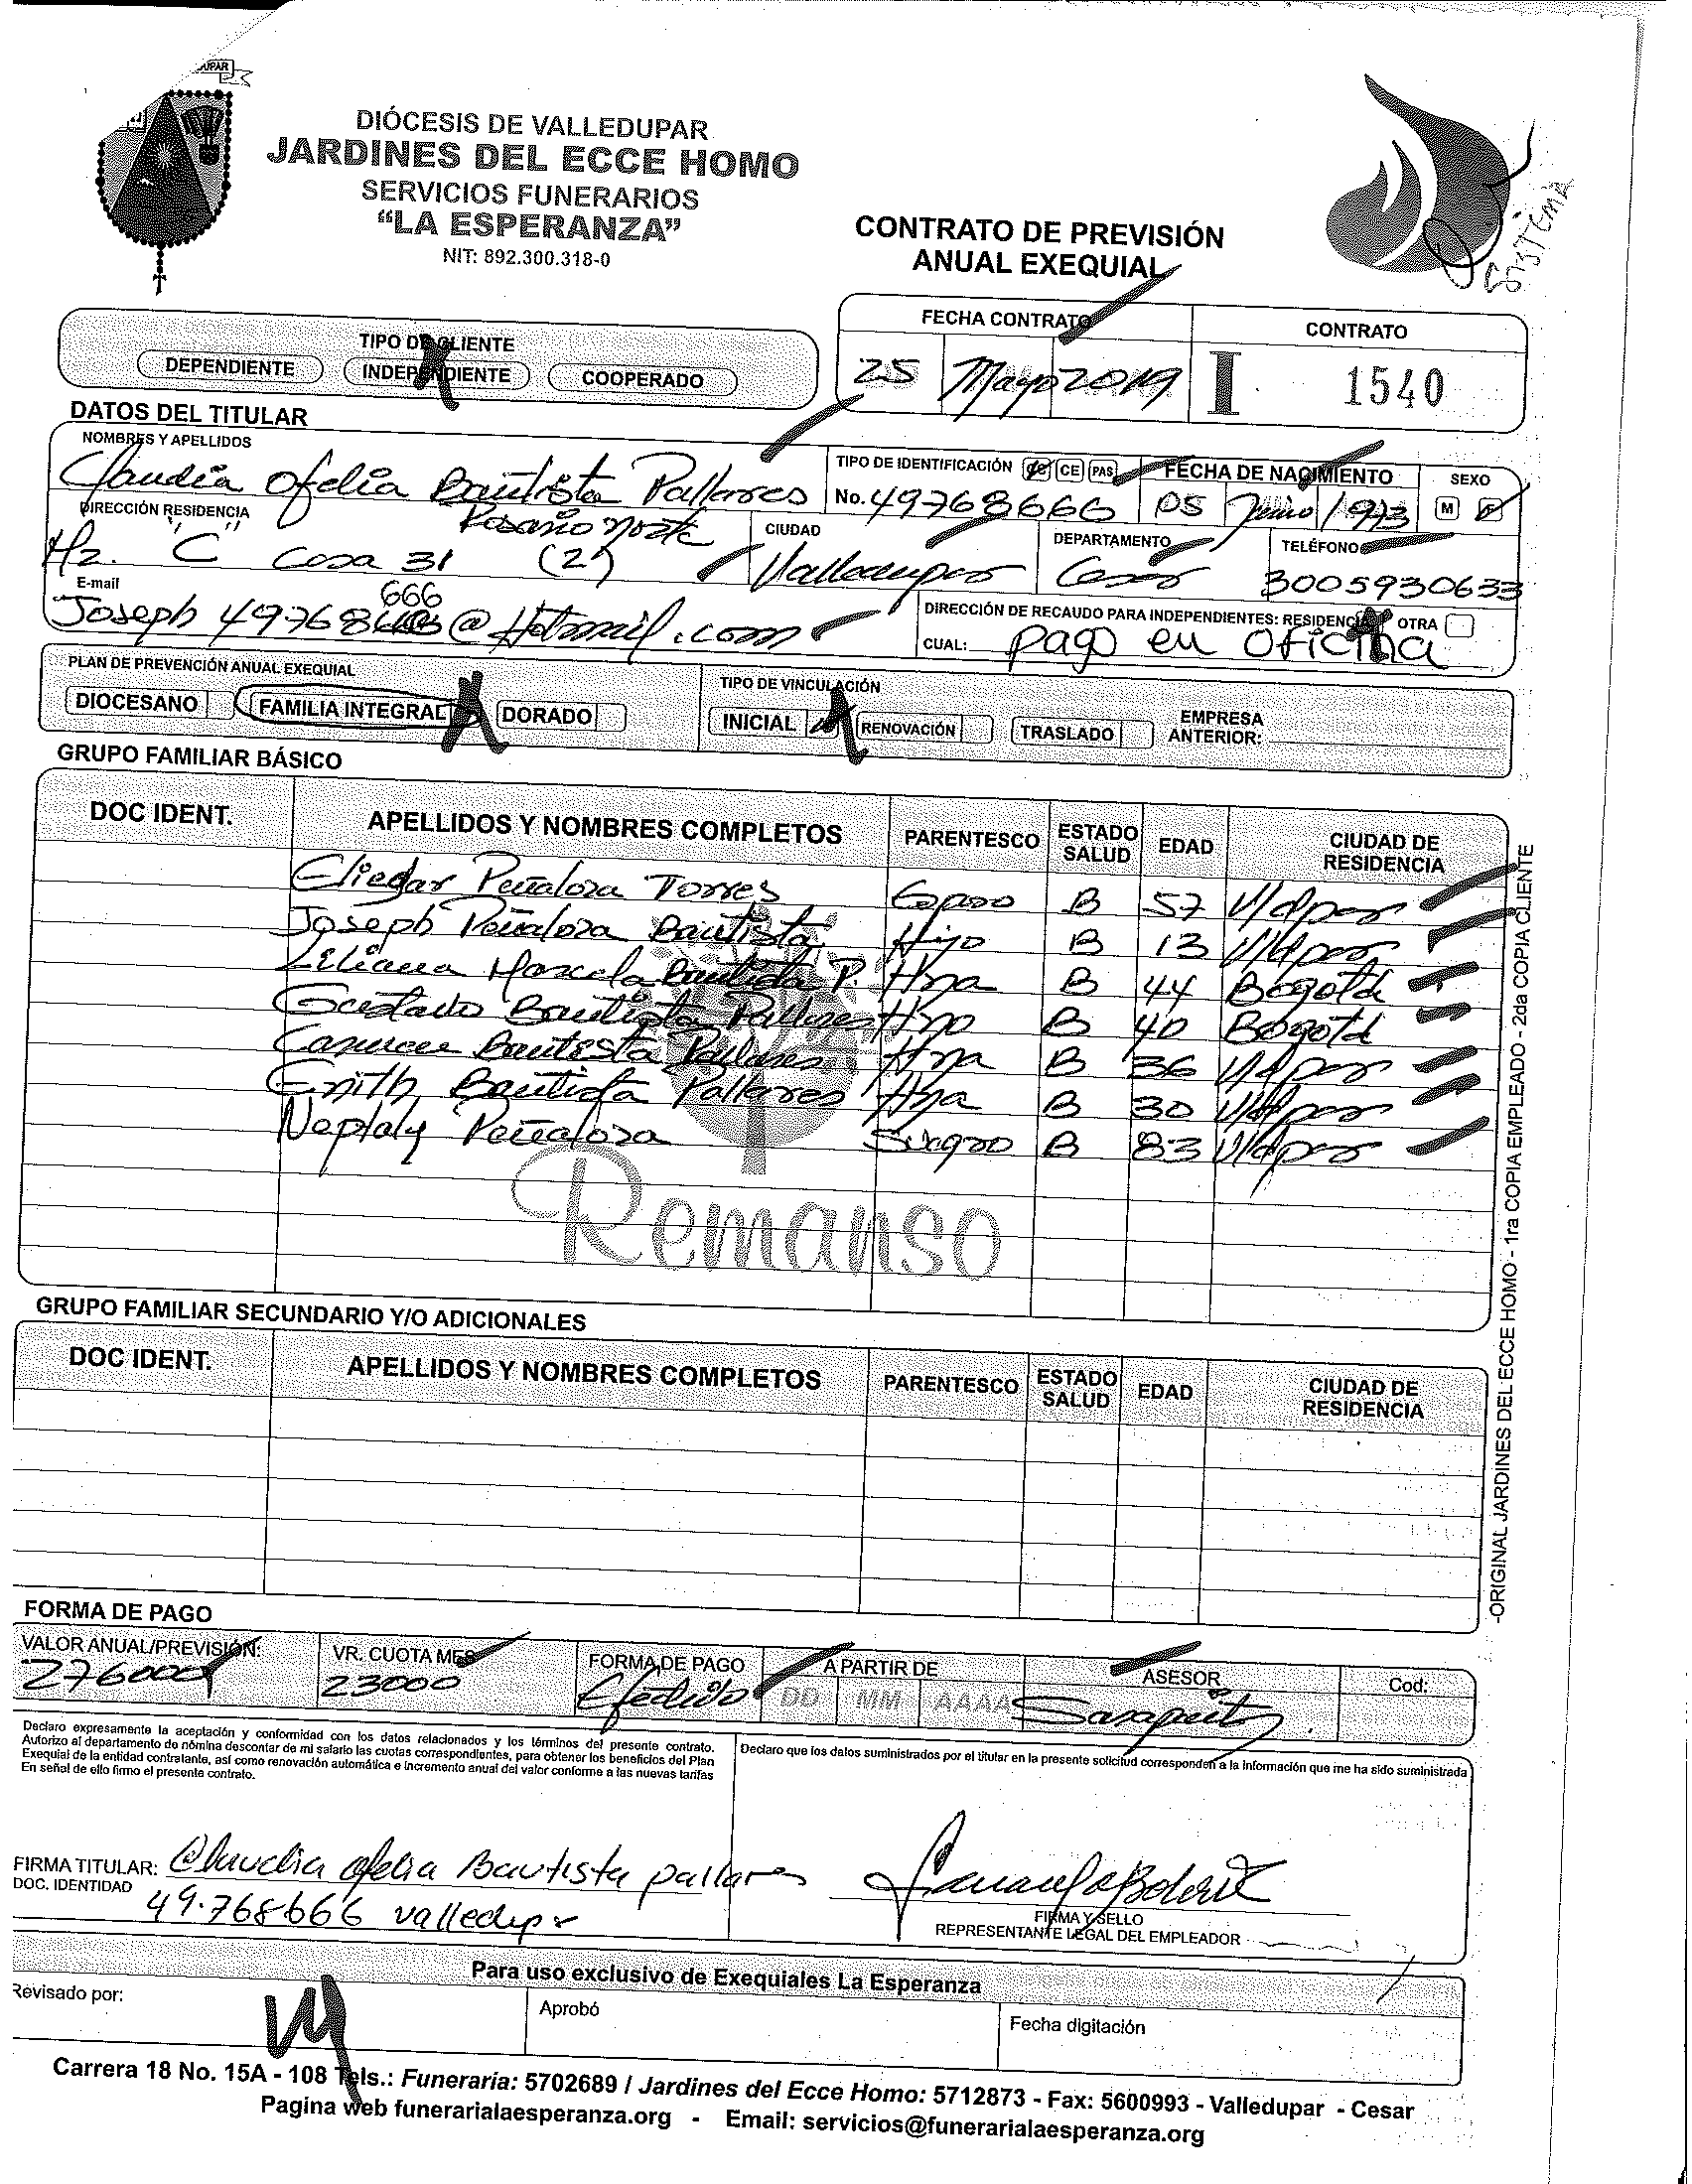 UPAR
DIÓCESIS DE VALLEDUPAR
JARDINES DEL ECCE HOMO
SERVICIOS FUNERARIOS
“LA ESPERANZA”
NIT: 892.300.318-0
CONTRATO DE PREVISIÓN
ANUAL EXEQUIAL
Sistema
TIPO DE CLIENTE
DEPENDIENTE INDEPENDIENTE COOPERADO
FECHA CONTRATO CONTRATO
25 Mayo 2019 I 1540
DATOS DEL TITULAR
NOMBRES Y APELLIDOS TIPO DE IDENTIFICACIÓN CE PAS FECHA DE NACIMIENTO SEXO
Claudia Ofelia Bautista Pallares No. 49768666 05 Junio 1973 M F
DIRECCIÓN RESIDENCIA Rosario Norte CIUDAD DEPARTAMENTO TELÉFONO
Mz. "C" Casa 31 (2) Valledupar Cesar 3005930633
E-mail 666 DIRECCIÓN DE RECAUDO PARA INDEPENDIENTES: RESIDENCIA OTRA
Joseph 49768 @Hotmail.com CUAL: pago en oficina
PLAN DE PREVENCIÓN ANUAL EXEQUIAL TIPO DE VINCULACIÓN
DIOCESANO FAMILIA INTEGRAL DORADO INICIAL RENOVACIÓN TRASLADO EMPRESA ANTERIOR:
GRUPO FAMILIAR BÁSICO
DOC IDENT. APELLIDOS Y NOMBRES COMPLETOS PARENTESCO ESTADO SALUD EDAD CIUDAD DE RESIDENCIA
Eliegar Peñaloza Torres Esposo B 57 V/dpar
Joseph Peñaloza Bautista Hijo B 13 V/dpar
Liliana Marcela Bautista P. Hna B 44 Bogotá
Gustavo Bautista Pallares Hno B 40 Bogotá
Carmen Bautista Pallares Hna B 36 V/dpar
Enith Bautista Pallares Hna B 30 V/dpar
Neptaly Peñaloza Suegro B 83 V/dpar
Remanso
GRUPO FAMILIAR SECUNDARIO Y/O ADICIONALES
DOC IDENT. APELLIDOS Y NOMBRES COMPLETOS PARENTESCO ESTADO SALUD EDAD CIUDAD DE RESIDENCIA
-ORIGINAL JARDINES DEL ECCE HOMO - 1ra COPIA EMPLEADO - 2da COPIA CLIENTE
FORMA DE PAGO
VALOR ANUAL/PREVISIÓN: VR. CUOTA MES FORMA DE PAGO A PARTIR DE ASESOR Cod:
276000 23000 Efectivo DD MM AAAA
Declaro expresamente la aceptación y conformidad con los datos relacionados y los términos del presente contrato.
Autorizo al departamento de nómina descontar de mi salario las cuotas correspondientes, para obtener los beneficios del Plan
Exequial de la entidad contratante, así como renovación automática e incremento anual del valor conforme a las nuevas tarifas
En señal de ello firmo el presente contrato.
Declaro que los datos suministrados por el titular en la presente solicitud corresponden a la información que me ha sido suministrada
FIRMA TITULAR: Claudia Ofelia Bautista pallares
DOC. IDENTIDAD 49.768666 valledupar
FIRMA Y SELLO
REPRESENTANTE LEGAL DEL EMPLEADOR
Para uso exclusivo de Exequiales La Esperanza
Revisado por: Aprobó Fecha digitación
Carrera 18 No. 15A - 108 Tels.: Funeraria: 5702689 / Jardines del Ecce Homo: 5712873 - Fax: 5600993 - Valledupar - Cesar
Pagina web funerarialaesperanza.org - Email: servicios@funerarialaesperanza.org